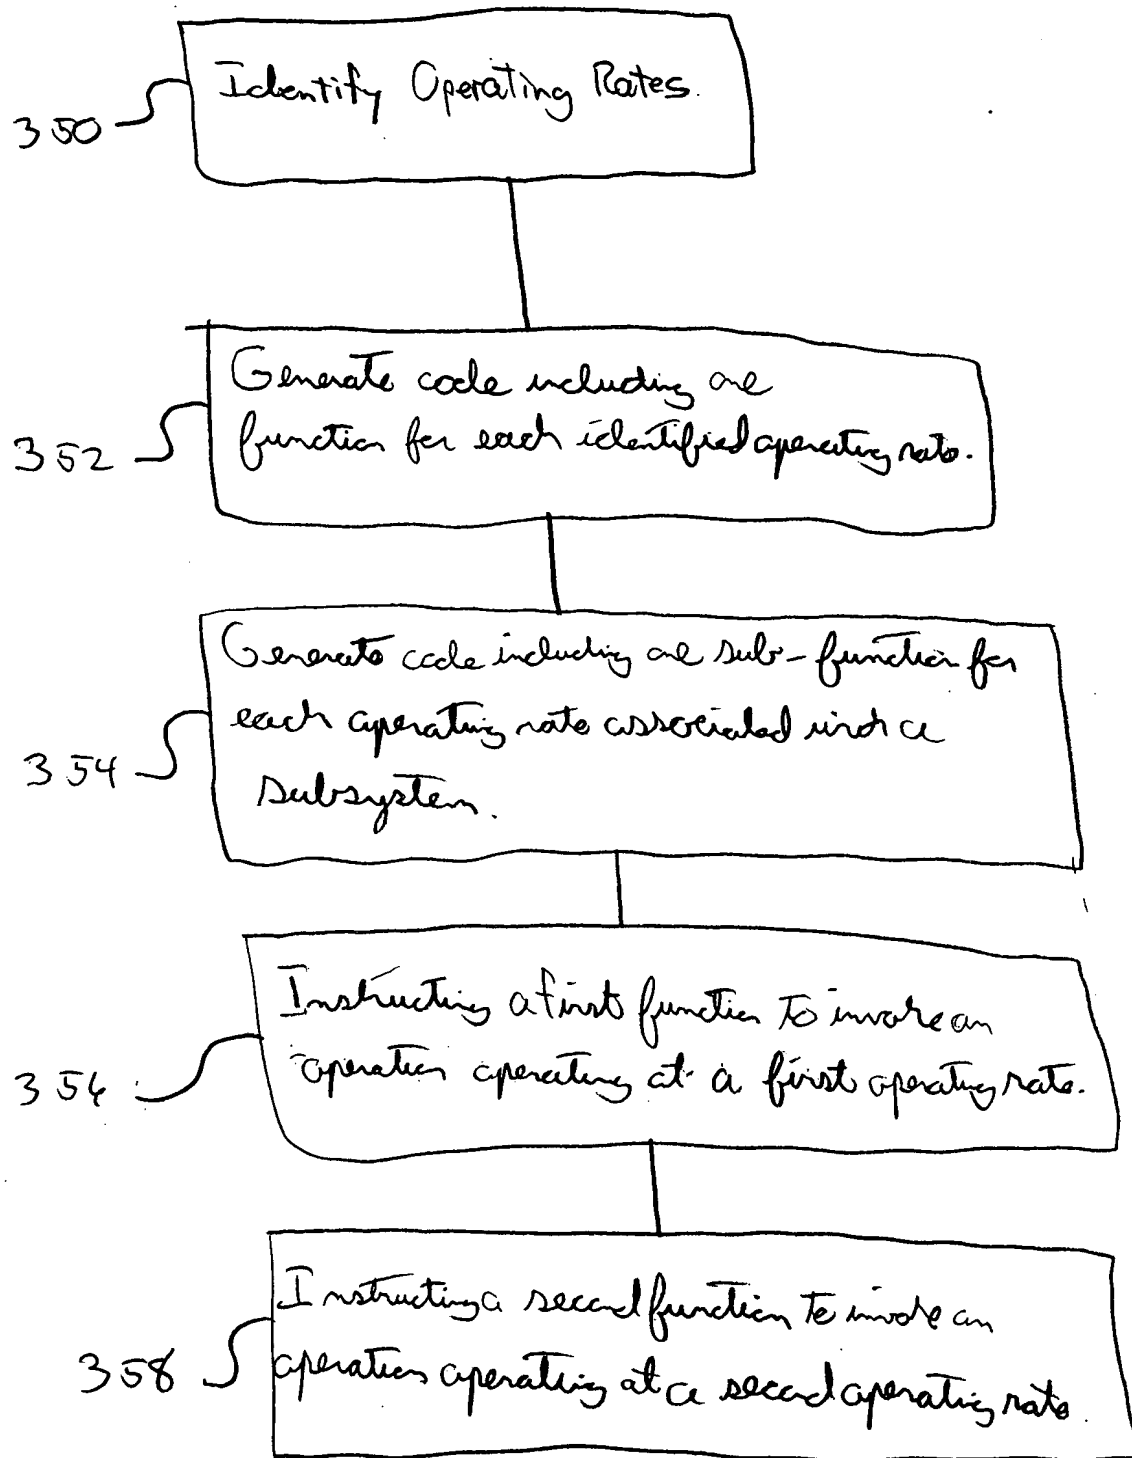 Identify Operating Rates.
350
Generate code including one
function for each identified operating rate.
352
Generate code including one sub-function for
each operating rate associated with a
subsystem.
354
Instructing a first function to invoke an
operation operating at a first operating rate.
356
Instructing a second function to invoke an
operation operating at a second operating rate.
358